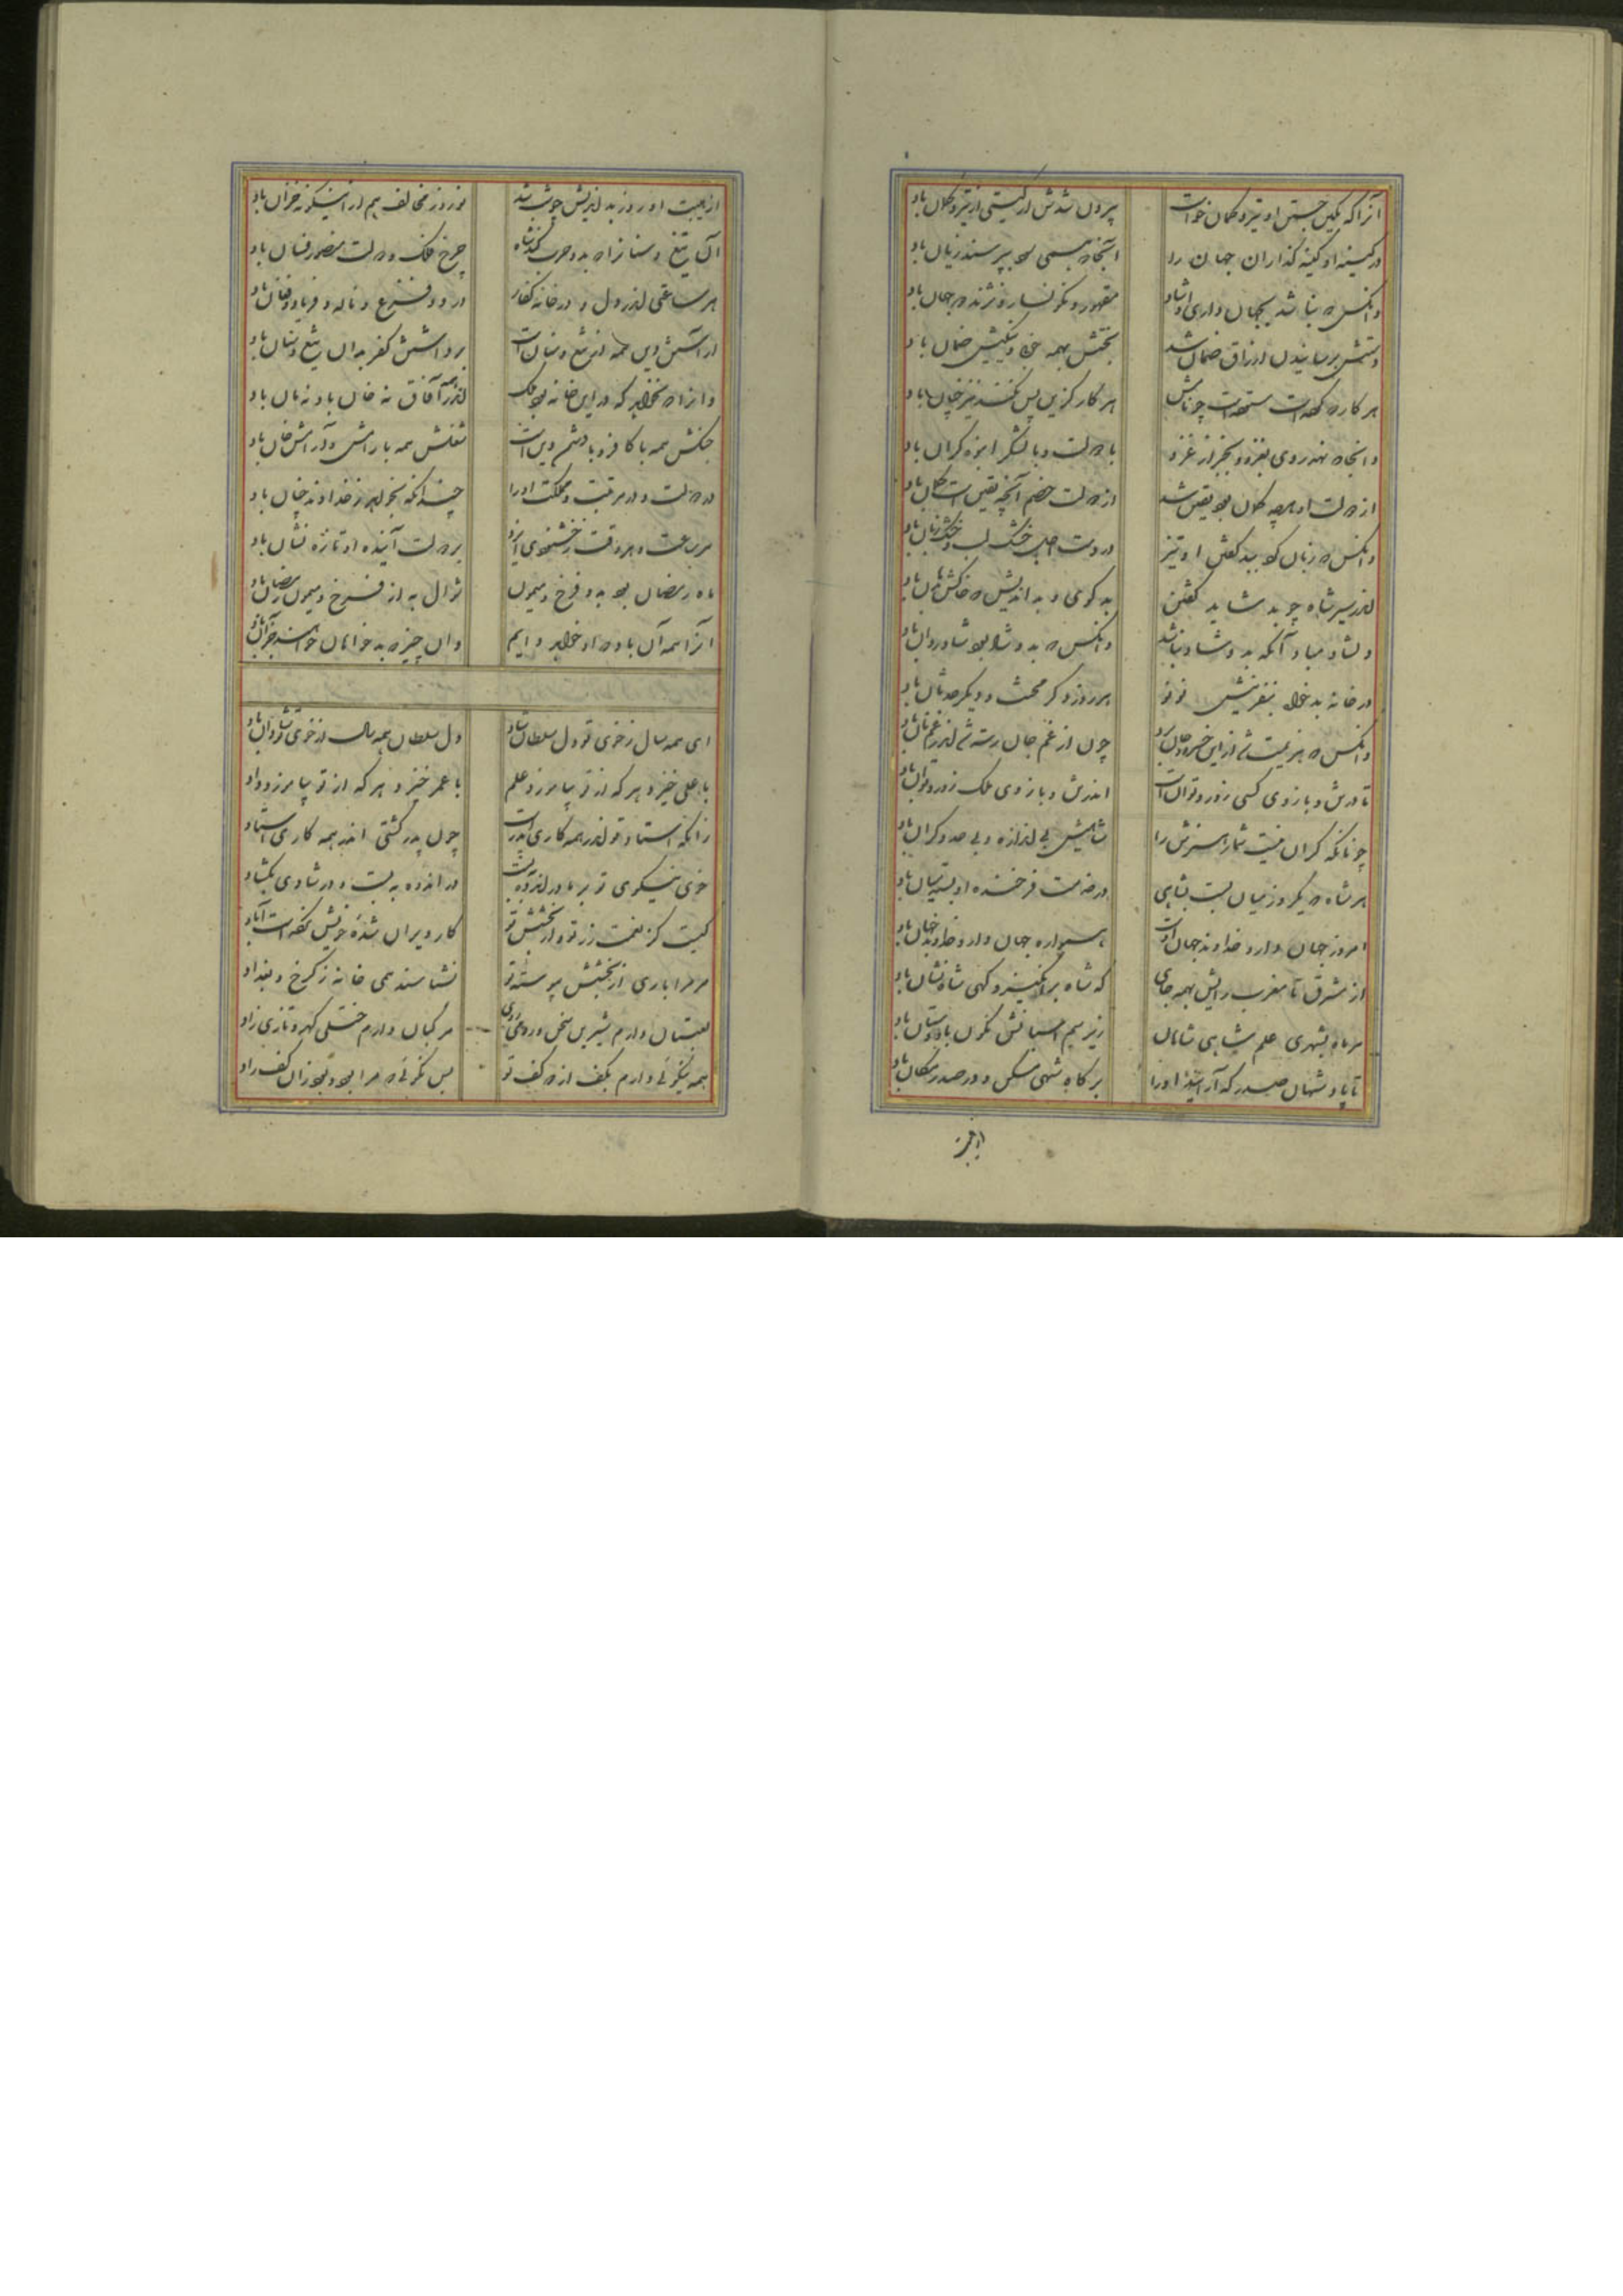 آنرا که بکین جستن او تیر و کمان خواست بیرون شدنش از گیتی از تیر و کمان باد
در کینه او کینه گذاران جهان را آنجا که همی سود بپرسند زیان باد
وانکس که نباشد بجهانداری او شاد مقهور و نگونسار و نژند در جهان باد
دستش برسانیدن ارزاق ضمان شد بختش بهمه خیر و نیکیش ضمان باد
هر کار که کرده است ستوده است چو نامش هر کار کزین پس بکند نیز چنان باد
وانجا که نهد روی بغزو و بجز از غزو با دولت و با لشکر انبوه گران باد
از دولت او هر چه گمان بود یقین شد از دولت خصم آنچه یقین است گمان باد
وانکس که زبان کرد ببد گفتن او تیز در دست اجل خشک لب و خشک زبان باد
اندر سیر شاه چو بد شاید گفتن بدگوی و بداندیش که خاکش بدهان باد
دلشاد مباد آنکه بدو شاد نباشد وانکس که بدو شاد بود شاد روان باد
در خانه بدخواه بنفرینش نو نو هر روز دگر محنت و دیگر حدثان باد
وانکس که هزیمت شد ازین خسرو و جان برد چون از غم جان رسته شد اندر غم نان باد
تا در تن و بازوی کسی زور و توان است اندر تن و بازوی ملک زور و توان باد
چونانکه کران نیست شمار هنرش را شاهیش بی اندازه و بی حد و کران باد
هر شاه که یکروز میان بست بشاهی در خدمت فرخنده او بسته میان باد
امروز جهان دارد و خداوند جهان اوست همواره جهان دار و خداوند جهان باد
از مشرق تا مغرب رایش بهمه جای گه شاه برانگیز و گهی شاه نشان باد
هر ماه بشهری علم شاهی شاهان زیر سم اسبانش نگون باد و ستان باد
تا پادشهان صدر گه آرایند او را بر گاه شهی مسکن و در صدر مکان باد
از هیبت او روز بداندیش چو شب شد نوروز مخالف بهم از اینگونه خزان باد
آن تیغ و سنانرا که بدو حرب کند شاه چرخ و فلک و دولت منصور فسان باد
هر ساعتی اندر دل و در خانه کفار درد و فزع و ناله و فریاد و فغان باد
آرامش دین همه از تیغ و سنان است بر دامنش کفر بدان تیغ و سنان باد
وانرا که نخواهد که در این خانه بود ملک اندر همه آفاق نه خان باد و نه مان باد
جنگش همه با کافر و با دشمن دین است شغلش همه با رامش و آرامش جان باد
در دولت و در مرتبت و مملکت او را چندانکه بخواهد ز خداوند چنان باد
هر ساعت و هر وقت ز خشنودی ایزد بر دولت آینده او تازه نشان باد
ماه رمضان بود بدو فرخ و میمون شوال به از فرخ و میمون رمضان باد
آنرا همه آن باد که او خواهد و دایم وان چیز که بدخواهان خواهند جز آن باد
ای همه سال ز خوی تو دل سلطان شاد دل سلطان همه سال از خوی تو شادان باد
با علی خیزد هر که از تو بیاموزد علم با عمر خیزد هر که از تو بیاموزد داد
زانکه استاد تو اندر همه کاری پدر است چون پدر گشتی اندر همه کاری استاد
خوی نیکوی تو بر ما در اندوه ببست در اندوه ببست و در شادی بگشاد
کیست کز نعمت تو و از بخشش تو کار ویران شده خویش نکرده است آباد
مر مرا باری از بخشش پیوسته تو نشناسند همی خانه ز کرخ و بغداد
لعبتان دارم شیرین سخن و رومی روی مرکبان دارم ختلی گهر و تازی زاد
همه نیکوئی دارم بکف از دو کف تو بس نکوئی که مرا بود و بود زان کف راد